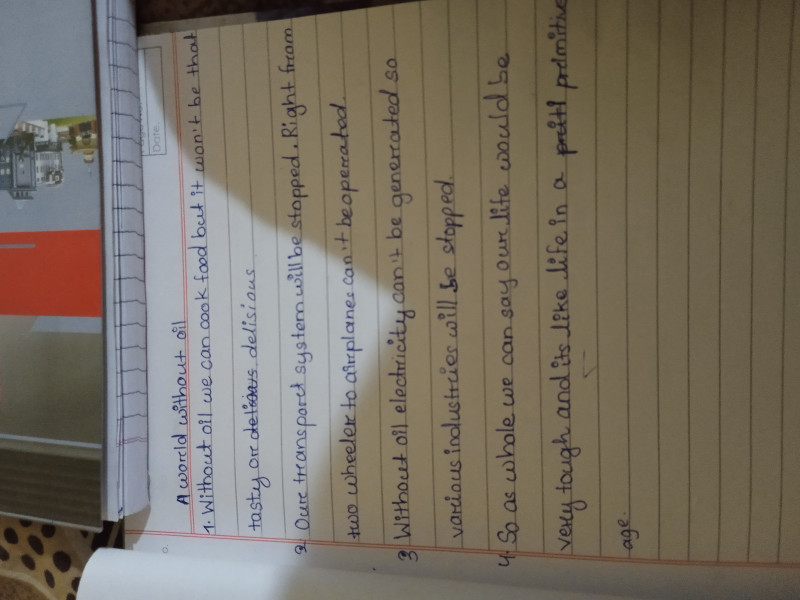 Date.
A world without oil
1. Without oil we can cook food but it won't be that
tasty or delisious delisious
2. Our transport system will be stopped. Right from
two wheeler to airplanes can't be operated.
3 Without oil electricity can't be generated so
various industries will be stopped.
4. So as whole we can say our life would be
very tough and its like life in a priiti primitive
age.